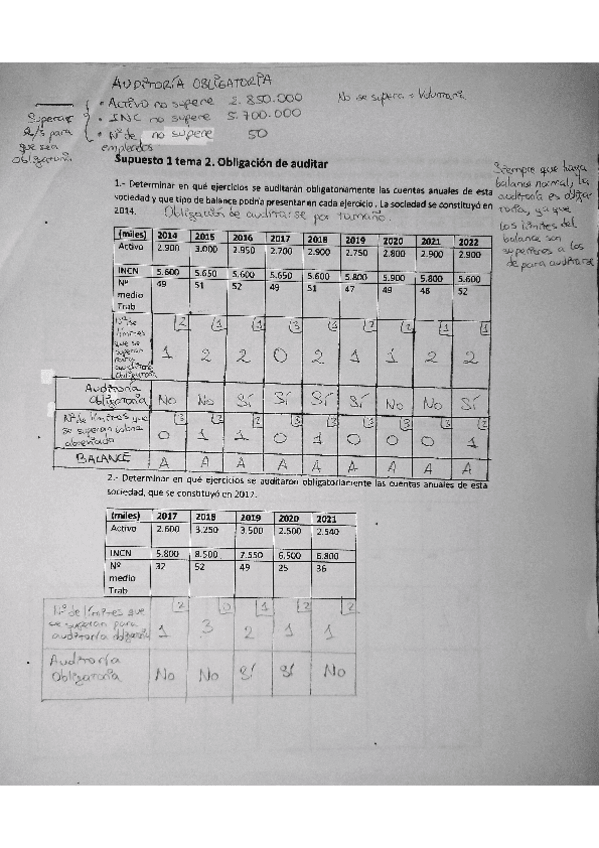 AUDITORÍA OBLIGATORIA
• Activo no supere 2.850.000
• INC no supere 5.700.000
• Nº de empleados no supere 50
Superar 2/3 para que sea obligatoria
No se supera → Voluntaria
Supuesto 1 tema 2. Obligación de auditar
1.- Determinar en qué ejercicios se auditarán obligatoriamente las cuentas anuales de esta
sociedad y que tipo de balance podría presentar en cada ejercicio . La sociedad se constituyó en
2014. Obligación de auditarse por tamaño.
Siempre que haya
balance normal, la
auditoría es obliga
toria, ya que
los límites del
balance son
superiores a los
de para auditarse
(miles) 2014 2015 2016 2017 2018 2019 2020 2021 2022
Activo 2.900 3.000 2.950 2.700 2.900 2.750 2.800 2.900 2.900
INCN 5.600 5.650 5.600 5.650 5.600 5.800 5.900 5.800 5.600
Nº medio Trab 49 51 52 49 51 47 49 48 52
Nº de límites que se superan para auditoría obligatoria 1 2 2 0 2 1 1 2 2
Auditoría Obligatoria No No Sí Sí Sí Sí No No Sí
Nº de límites que se superan 0 1 1 0 1 0 0 0 1
BALANCE A A A A A A A A A
2.- Determinar en qué ejercicios se auditaron obligatoriamente las cuentas anuales de esta
sociedad, que se constituyó en 2017.
(miles) 2017 2018 2019 2020 2021
Activo 2.600 3.250 3.500 2.500 2.540
INCN 5.800 8.500 7.550 6.500 6.800
Nº medio Trab 37 52 49 25 36
Nº de límites que se superan para auditoría obligatoria 1 3 2 1 1
Auditoría Obligatoria No No Sí Sí No